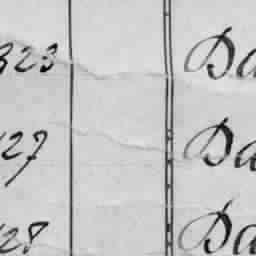 323 Da
127 Da
128 Da